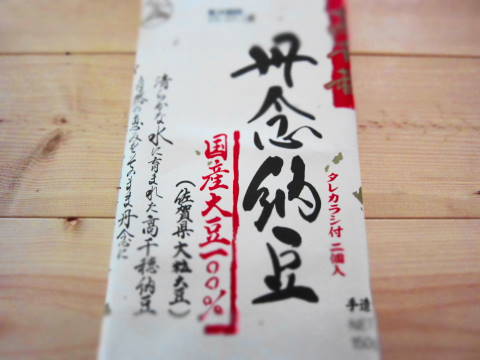 丹念納豆
タレカラシ付 二個入
国産大豆一〇〇%
(佐賀県大粒大豆)
清らかな水に育まれた高千穂納豆
自然の恵みをそのまま丹念に
手造
NET
150g